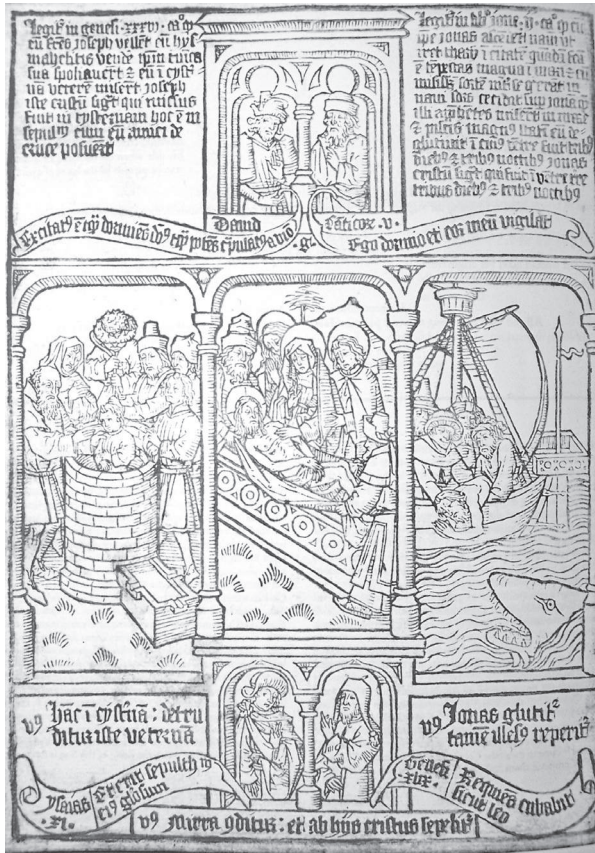 Legit in genesi .xxxvij. ca° q
cū frēs Joseph vellēt eū hys
mahelitis vēdē ipm tunica
sua spoliauerūt & eū ī cyst
nā veterē miserūt Joseph
iste cristū sigt qui missus
fuit in cysternam hoc ē in
sepulcrū cum eū amici de
cruce posuerūt
Legit in lib° Jone .ij. ca° q cū
ipe Jonas ascēdēt navī ut
iret tharsȳ ī ciuitatē quādā fcā
ē tēpestas magna ī mari & cū
misissēt sortē īt se q esset in
navi sors cecidit sup Jonā qē
illi apphēdētes miserūt in mare
& piscis magnus statī eū de-
glutiuit ī cuius vētre fuit tribus
diebus & tribus noctibus Jonas
cristū sigt qui fuit ī vētre tre
tribus diebus & tribus noctibus
David
Cāticor. v.
Excitatus ē tāq dormiēs dūs tāq potēs crapulatus a vīo
Ego dormio et cor meū vigilat
vs hac ī cystnā : detru
ditur iste veternā
vs Jonas glutit
tamē illesus reperit
ysaias .xi.
Et erit sepulchrū
eius glosum
Genesi .xlix.
Requiēs cubabit
sicut leo
vs mirra oditur : et ab hijs cristus sepelit